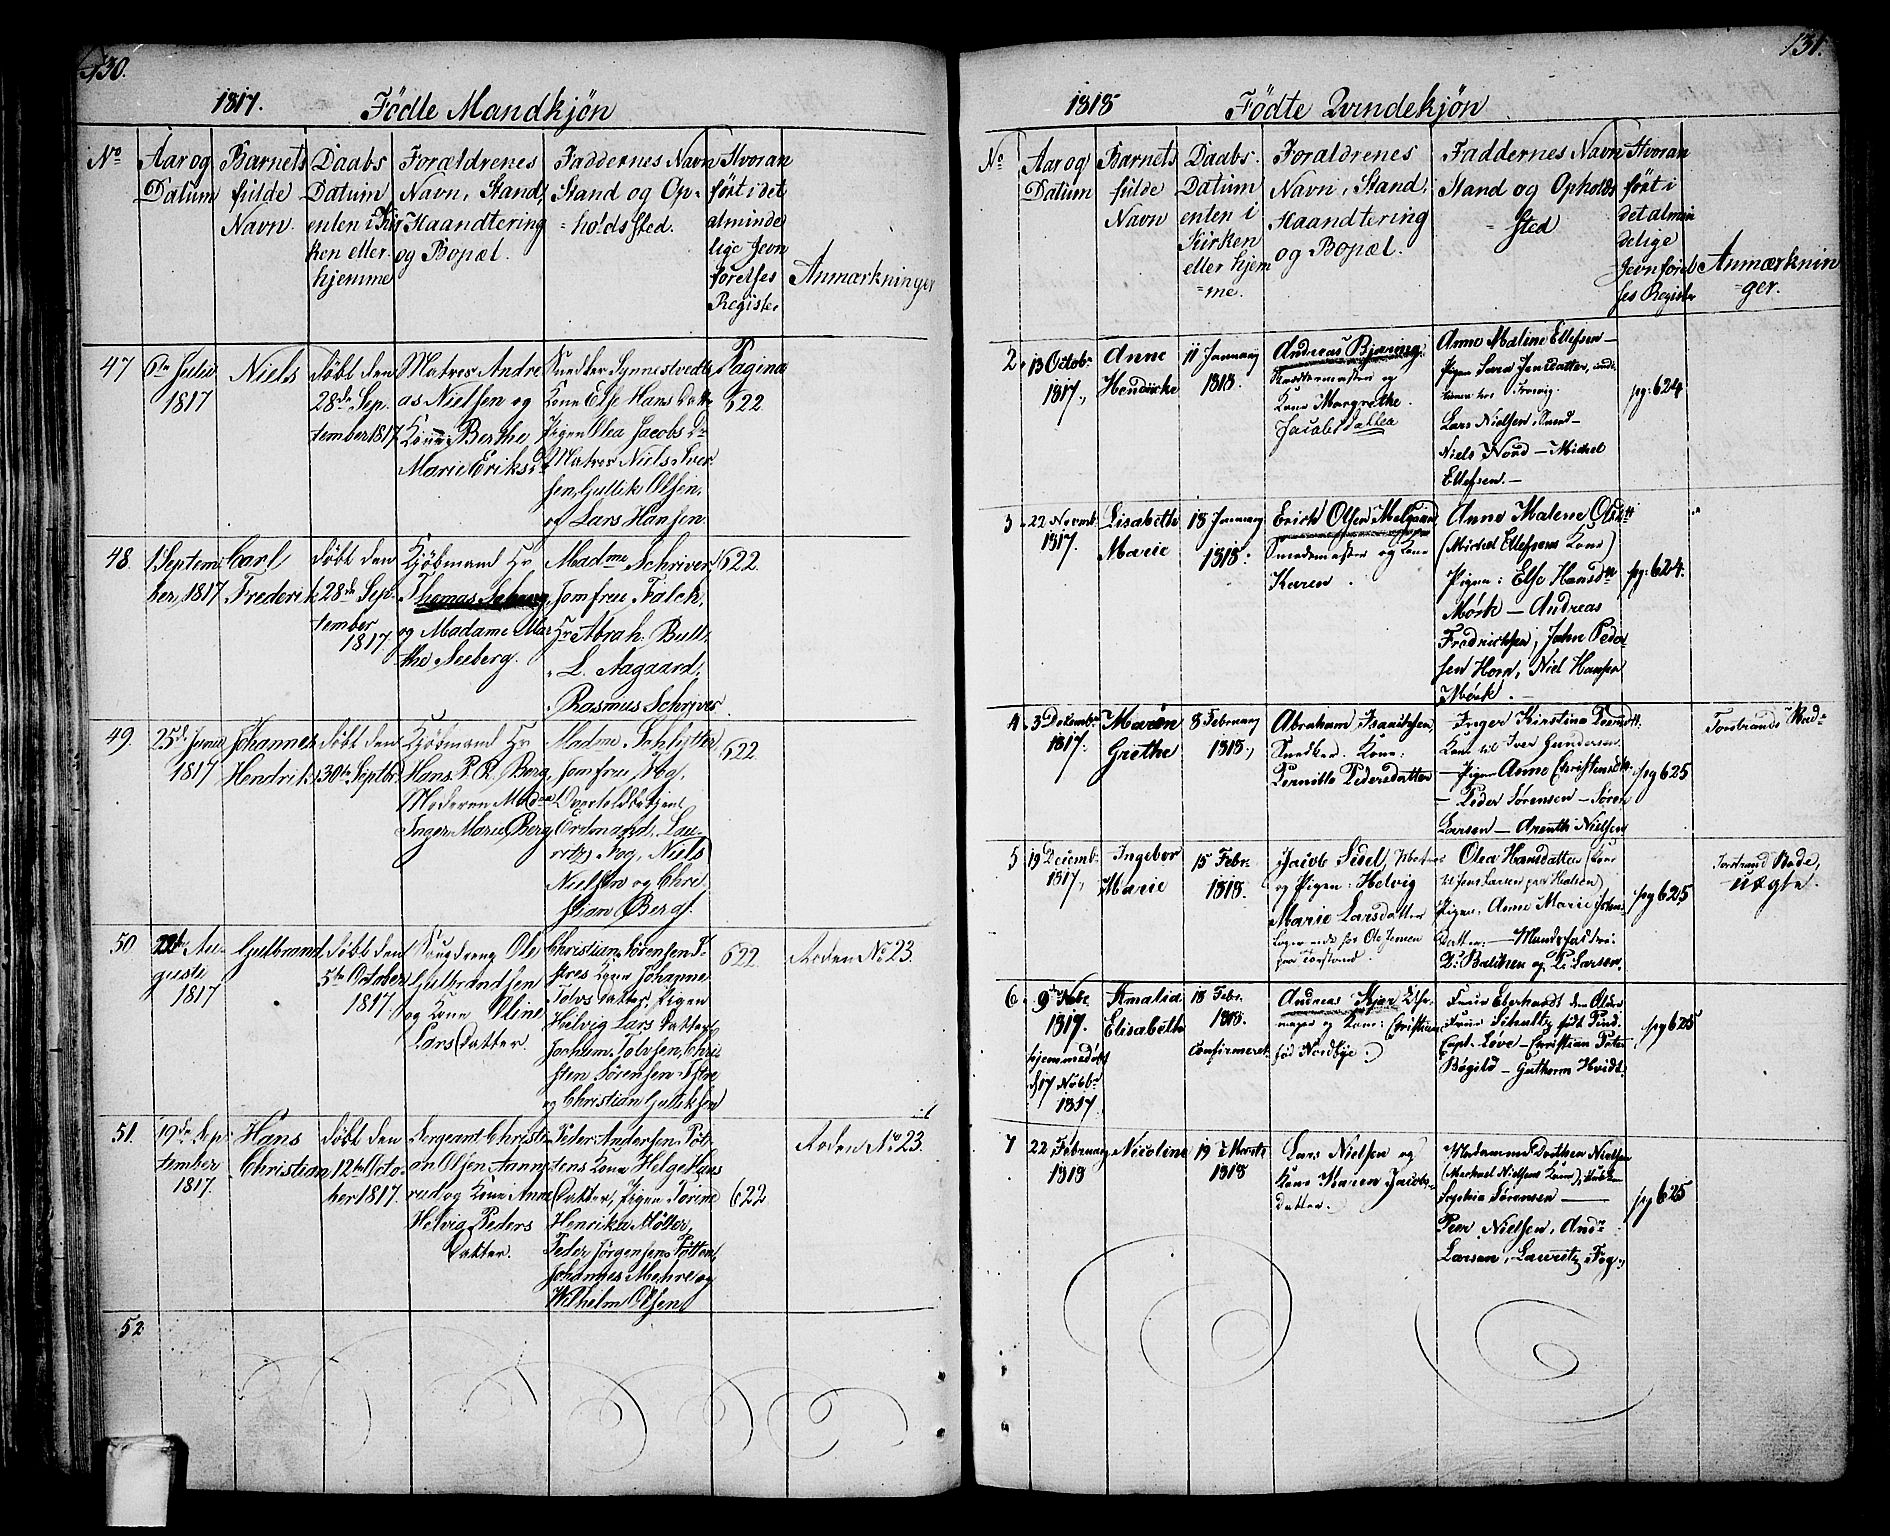 130.
1817. Födte Mandkjön
No
Aar og
Datum
Barnets
fulde
Navn.
Daabs
Datum
enten i Kir
ken eller
hjemme
Foraldrenes
Navn, Stand,
Haandtering
og Bopæl.
Faddernes Navn
Stand og Op-
=holdssted.
Hvoran
ført i det
alminde
lige Jevn
førelses
Register
Anmærkninger
47
6te Julii
1817
Niels
døbt den
28de Sep.
tember 1817
Matros Andre
as Nielsen og
Kone Berthe
Marie Eriksd.
Kone Else Hans Datter
Pigen Olea Jacobs Dr
Matros Niels Iver
sen, Gullik Olsen,
og Lars Hansen.
Pagina
622
48.
1 Septem
ber, 1817
Carl
Frederik
døbt den
28de Sep.
tember
1817
Kjøbmand Hr
Thomas Seberg
og Madame Mar
the Seeberg.
Madme Schriver
Jomfru Falck,
Hr Abrah. Bull,
L. Aagaard,
Rasmus Schriver
622.
49.
25de Junii
1817
Johannes
Hendrik
døbt den
30te Septbr
Kjøbmand Hr
Hans P. R. Berg
Moderen Madm
Inger Marie Berg
Madm Schlytter
Jomfru Fog,
Overtoldbetjent
Erdmand, Lau-
ritz Fog, Niels
Nielsen og Chri
stian Berg.
622.
50
22de Au-
gusti
1817
Gulbrand
døbt den
5te October
1817.
Ole
Gulbrandsen
og Kone Oline
Lars Datter.
Christian Sørensen
Kone Johanne
Tolvs Datter, Pigen
Helvig Lars Datter
Jochum Tolvsen, Chri
sten Sørensen
og Christian Gulliksen
622.
Acken No 23.
51.
19de Sep
tember
1817.
Hans
Christian
døbt den
12te Octo
ber 1817.
Sergeant Christi
an Olsen Ann
rud, og Kone Anne
Helvig Peders
Datter.
Peder Andersen
Kone Helge Hans
Datter, Pigen Torine
Henrika Møller,
Peder Jørgensen
Johannes Mehre og
Wilhelm Olsen
622
No 23.
52
131.
1818 Födte Qvindekjön
No
Aar og
Datum
Barnets
fulde
Navn
Daabs.
Datum
enten i
Kirken
eller hjem
=me.
Foraldrenes
Navn, Stand,
Haandtering
og Bopæl.
Faddernes Navn
Stand og Opholds
=sted
Hvoran
ført i
det almin
delige
Jevnførel
ses Register
Anmærknin
=ger.
2
13 Octobr
1817.,
Anne
Hendrikke
11 January
1818.
Andreas Bjørning
og
Kone Margrethe
Jacobsdatter
Anne Malene Ellefsen -
Pigen Sara Jensdatter,
Lars Nielsen,
Niels Nord - Michel
Ellefsen. -
pg: 624
3
22 Novemb.
1817.
Lisabeth
Marie
18 January
1818.
Erich Olsen Melgaard
Smedemester og Kone
Karen.
Anne Malene Olsdtt
(Michel Ellefsens Kone)
Pigen: Else Hansdtt
Mørk - Andreas
Fredrichsen, John Peder
sen Horn, Niel Hansen
Mørk. -
pg: 624.
4
3 Decembr
1817.
Maren
Grethe
8 February
1818.,
Abraham Isaachsen,
Snedker. Kone:
Pernille Pedersdatter
- Inger Kirstine Peersdtt.
Kone til Iver Gundersen.
- Pigen Anne Christensdtt.
- Peder Sørensen - Søren
Larsen - Arenth Nielsen
pg 625
5
19 Decemb.
1817.,
Ingebor
Marie
15 Febr.
1818.
Jacob Sidel,
og Pigen: Helvig
Marie Larsdatter
Olea Hansdatter
Pigen: Anne Marie
Datter: -
og P: Larsen.
pg 625
uægte.
6
9de Nobr
1817.
hjemmedøbt
d 17 Nobbr
1817
Amalia
Elisabeth
18 Febr.
1818.
Confirmeret
Andreas Kjær
og Kone: Christiane
fød Nordbye.
Capt. Løve - Christian Peter
Bøgild - Guthorm Hvidt.
pg 625
7
22 February
1818
Nicoline
19 Marts
1818
Lars Nielsen og
Kone Karen Jacobs-
datter.
Madamme Dorthea Nielsen
(Michael Nielsens Kone),
Sophia Sørensen -
Peer Nielsen, Andr
Larsen, Lauritz Fog.,
pg 625